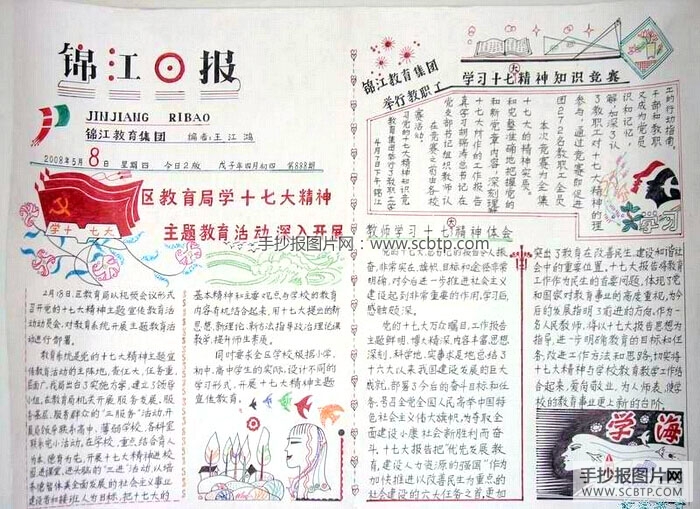 锦江日报
JINJIANG RIBAO
锦江教育集团 编者:王江鴻
2008年5月8日 星期四 今日2版 戊子年四月初四 第888期
学十七大
区教育局学十七大精神
主题教育活动深入开展
2月18日,区教育局以视频会议形式
召开的十七大主题宣传教育活
动动员会,对教育系统开展主题教育活
动进行部署。
教育系统是党的十七大精神主题宣
传教育活动的主阵地,责任大、任务重、
基本精神和主要观点与学校的教育
内容有机结合起来,用十七大提出的新
思想、新理论、新方法指导政治理论课
教学,提升师生素质。
同时要求全区学校根据小学、
初中、高中学生的实际,设计不同的
学习形式,开展十七大精神主题
宣传教育。
锦江教育集团
举行教职工
学习十七大精神知识竞赛
4月7日下午锦江
教育集团举行了教职工
学习党的十七大精神知识竞
赛活动。
在竞赛之前由各校
党支部书记组织教师认
真学习胡锦涛总书记在
十七大所作的工作报告
和新党章内容,深刻理解
和完整准确地把握党的
十七大精神实质。
本次竞赛为全集
团272名教职工全员
参与,通过竞赛即促进
了教职工对十七大精神的理
解,加深了认
识和记忆,
又成为党员
干部和教职
工的行动指南。
学习
教师学习十七大精神体会
党的十七大上的报告令人振
奋,非常实在,旗帜、目标和途径非常
明确,对今后进一步推进社会主义
建设起到非常重要的作用,学习后,
感触颇深。
党的十七大万众瞩目,工作报告
主题鲜明,博大精深,内容丰富思想
深刻,科学地、实事求是地总结了
十六大以来我国建设发展的巨大
成就,部署了今台的奋斗目标和任
务,号召全党全国人民高举中国特
色社会主义伟大旗帜,为夺取全
面建设小康社会新胜利而奋
斗。十七大报告把“优先发展教
育,建设人力资源的强国”作为
加快推进以改善民生为重点的
社会建设的六大任务之首,更加
突出了教育在改善民生、建设和谐社
会中的重要位置。十七大报告将教育
工作作为民生的首要问题,体现了党
和国家对教育事业的高度重视,为今
后的发展指明了前进的方向。作为一
名人民教师,将以十七大报告思想为
指导,进一步明确教育的目标和任
务,改进工作方法和思路,切实将
十七大精神与学校教育教学工作结
合起来,爱岗敬业,为人师表,使学
校的教育事业更上新的台阶。
学海
手抄报图片网:www.scbtp.com
手抄报图片网
WWW.SCBTP.COM